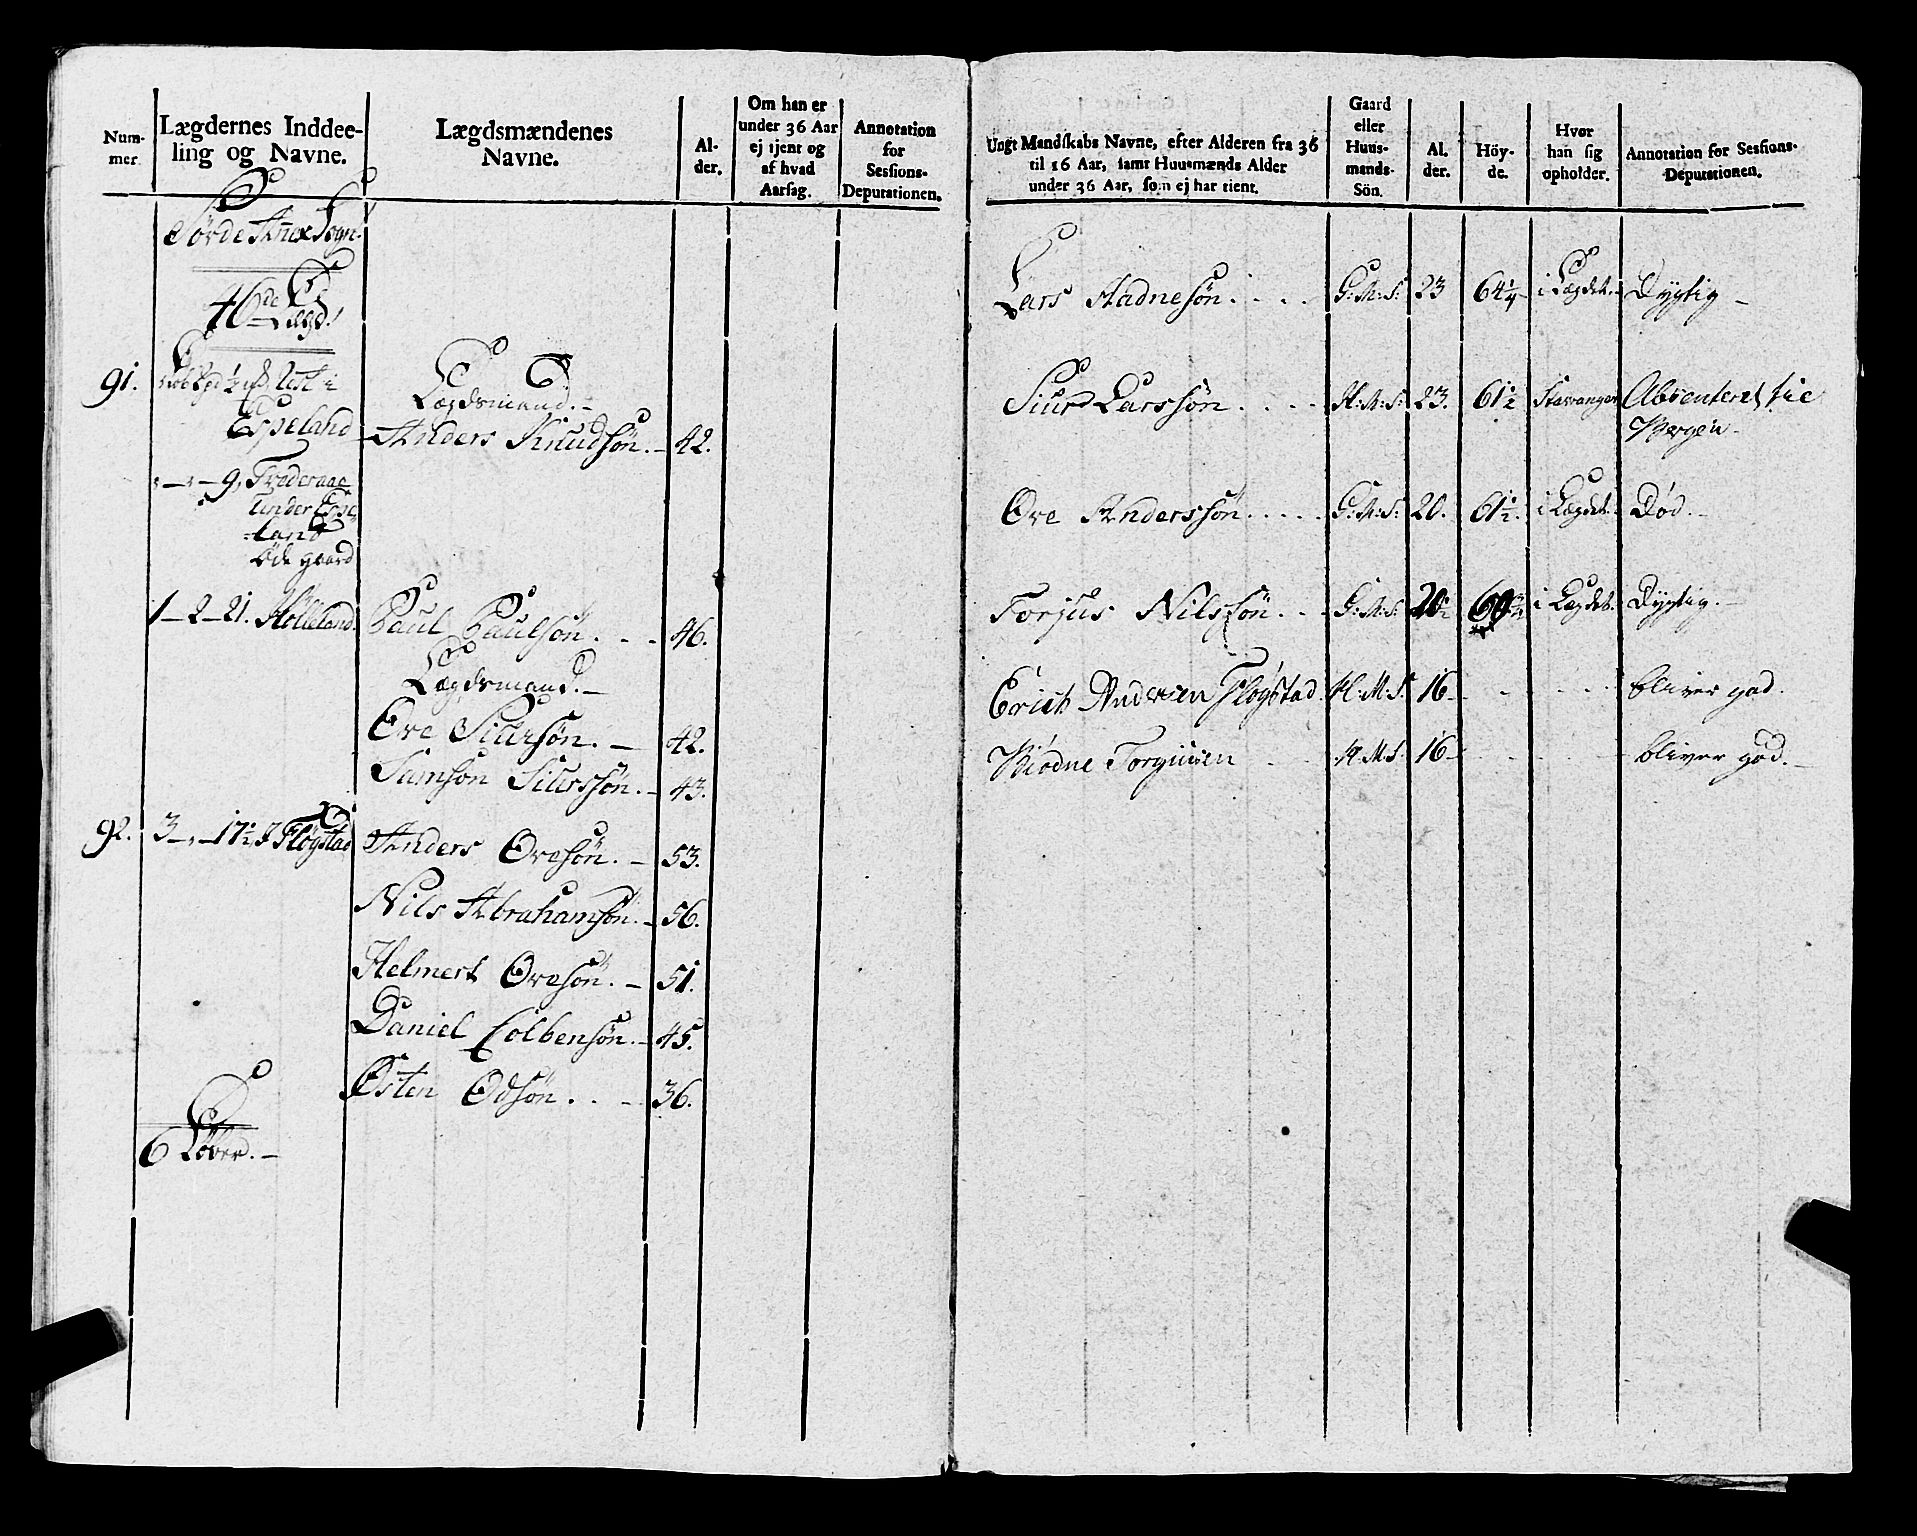 Num-
mer.
Lægdernes Inddee-
ling og Navne.
Lægdsmændenes
Navne.
Al-
der.
Om han er
under 36 Aar
ej tjent og
af hvad
Aarsag.
Annotation
for
Sessions-
Deputationen.
Annex Sogn.
46de Lægd.
91. Espeland
Lægdsmand.
Anders Knudsøn. 42.
9. Træderaae
under Espe-
land
øde gaard
1 - 2 - 21. Holleland. Paul Paulsøn. 46.
Lægdsmand.
Ove Siursøn. 42.
Samson Siurssøn. 43.
92. 3 - 17½ Fløgstad Anders Ovesøn. 53.
Nils Abrahamsøn. 56.
Helmert Ovesøn. 51.
Daniel Colbensøn. 45.
Østen Odsøn. 36.
6
Ungt Mandskabs Navne, efter Alderen fra 36
til 16 Aar, samt Huusmænds Alder
under 36 Aar, som ej har tient.
Gaard
eller
Huus-
mands-
Sön.
Al-
der.
Höy-
de.
Hvor
han sig
opholder.
Annotation for Sessions-
Deputationen.
Lars Aadnesøn. G:M:S: 23 64¼ i Lægdet. Dygtig
Siurd Larssøn. H:M:S: 23. 61½ Stavanger Absenteret til
Bergen
Ove Anderssøn. G:M:S: 20. 61½. i Lægdet. Død.
Torjus Nilssøn. G:M:S. i Lægdet. Dygtig.
Erich Andersen Fløgstad. H:M:S: 16 bliver god.
Torgiusen H.M.S. 16 bliver god.